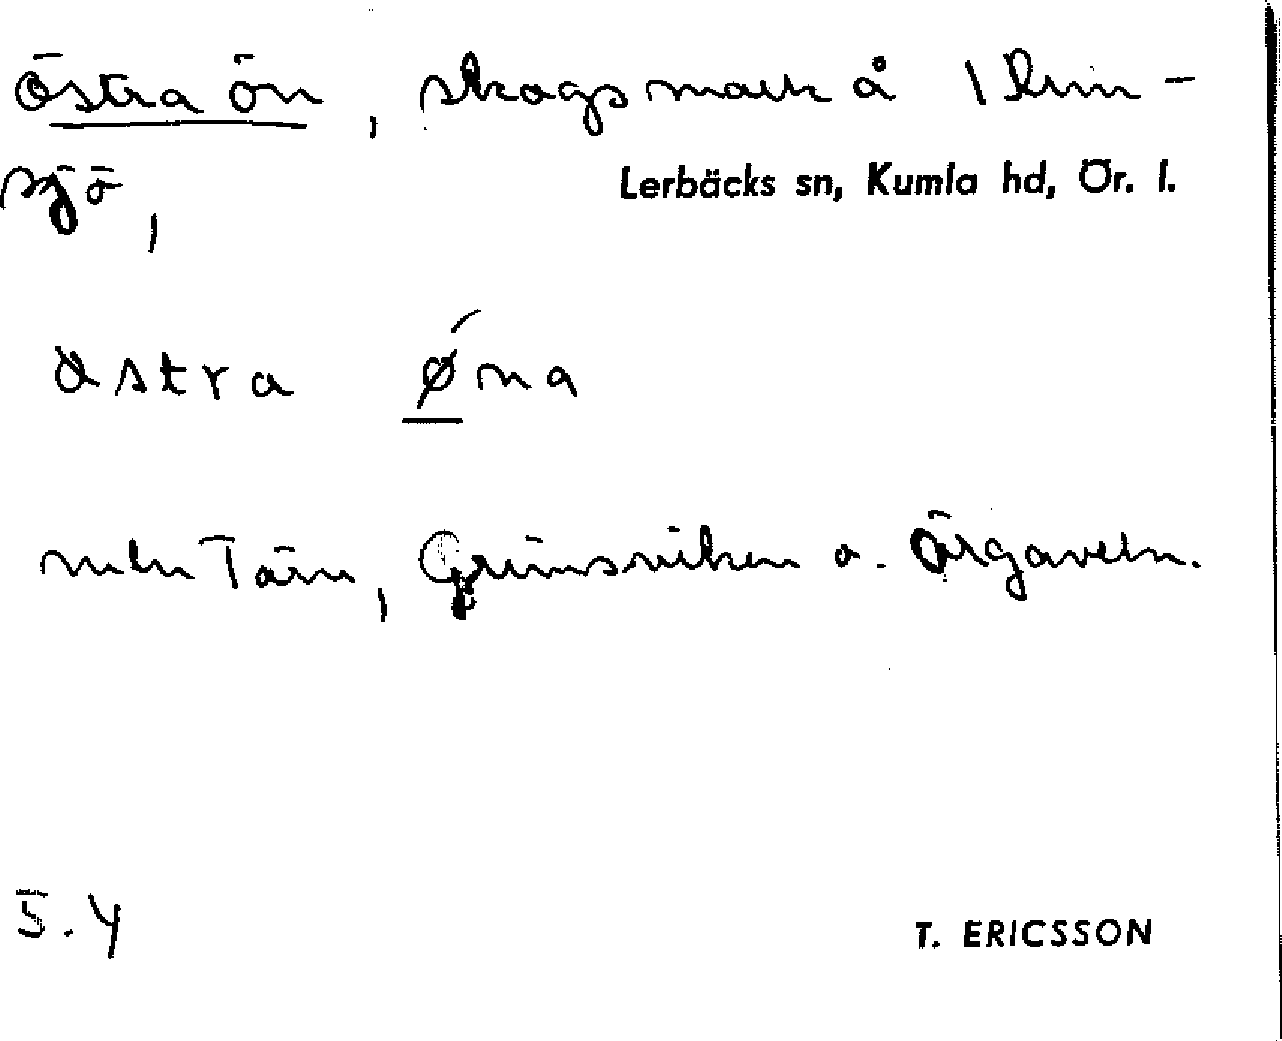 Östra ön, skogsmark å 1 Rini-
sjö,
Lerbäcks sn, Kumla hd, Ör. l.
östra øna
mln Tärn, Grimsviken o. Örgaveln.
5.4
T. ERICSSON